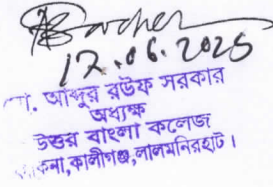 17.06.2025
মো. আব্দুর রউফ সরকার
অধ্যক্ষ
উত্তর বাংলা কলেজ
কাকিনা, কালীগঞ্জ, লালমনিরহাট।